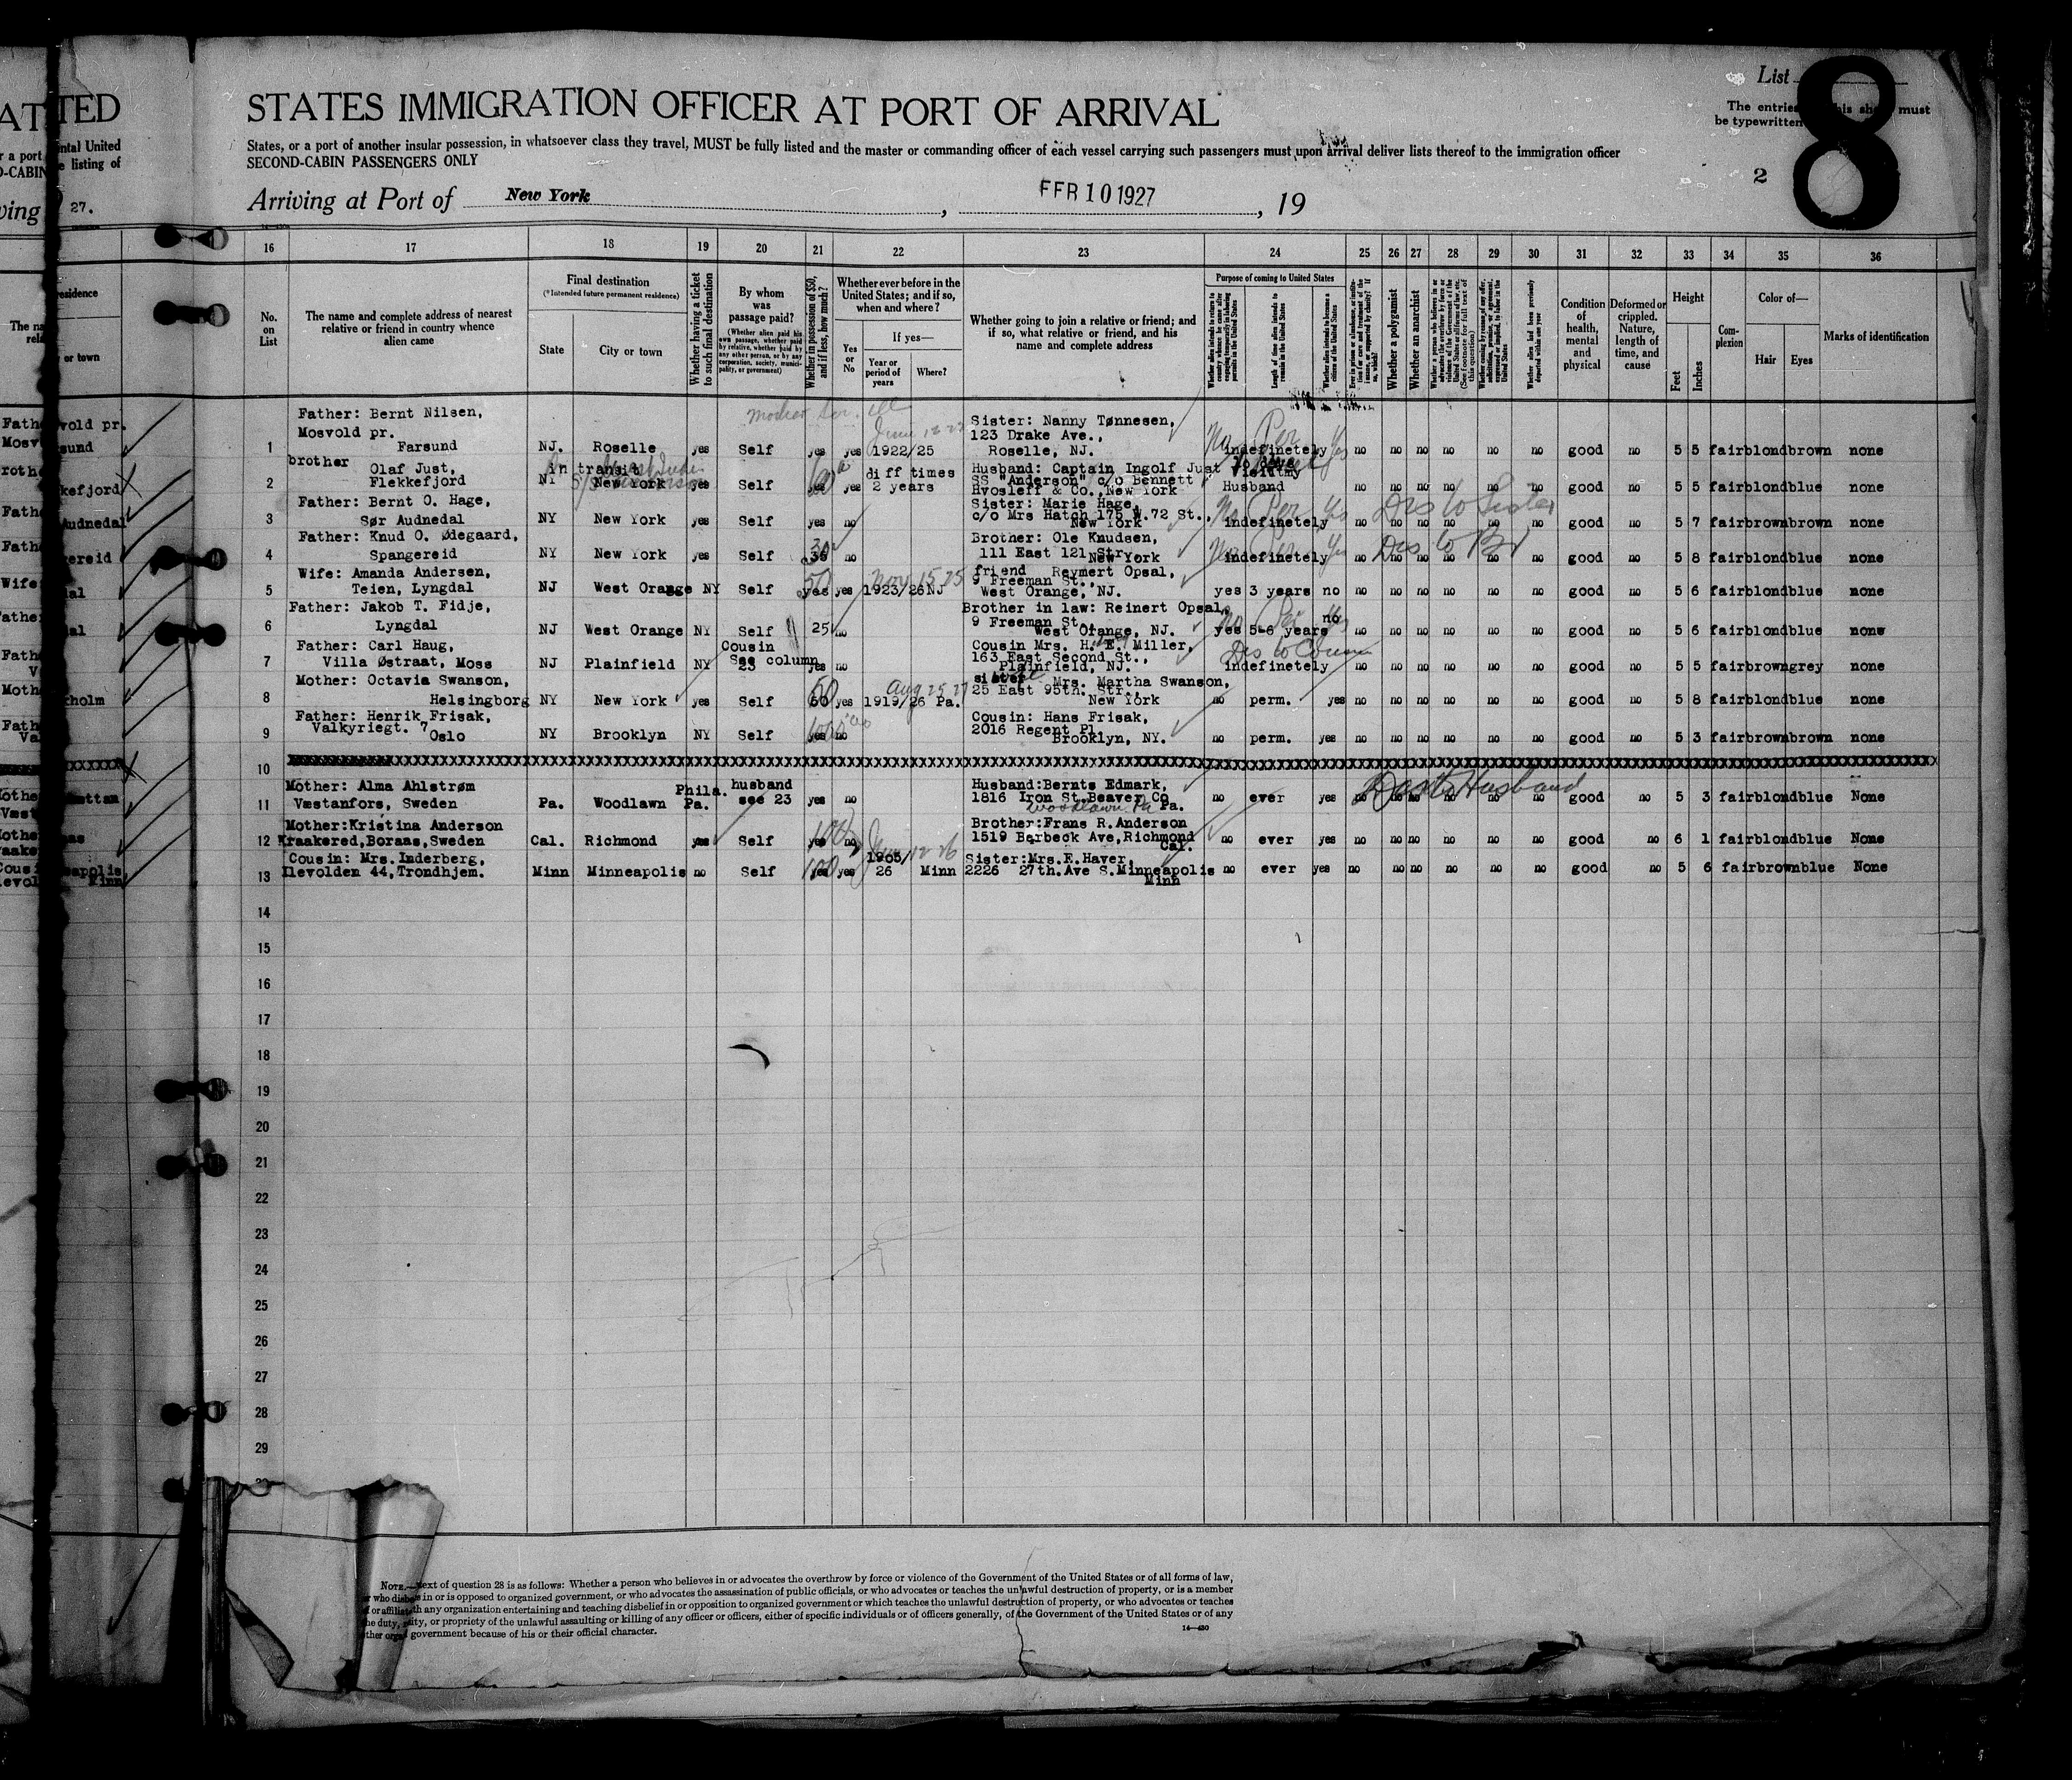 ATTED
STATES IMMIGRATION OFFICER AT PORT OF ARRIVAL
List 8
The entries this sheet must
be typewritten
States, or a port of another insular possession, in whatsoever class they travel, MUST be fully listed and the master or commanding officer of each vessel carrying such passengers must upon arrival deliver lists thereof to the immigration officer
SECOND-CABIN PASSENGERS ONLY
2
27.
Arriving at Port of New York, FEB 10 1927, 19
16 17 18 19 20 21 22 23 24 25 26 27 28 29 30 31 32 33 34 35 36
No. on List
The name and complete address of nearest relative or friend in country whence alien came
Final destination
(*Intended future permanent residence)
State
City or town
Whether having a ticket to such final destination
By whom was passage paid?
(Whether alien paid his own passage, whether paid by relative, whether paid by any other person, or by any corporation, society, municipality, or government)
Whether in possession of $50, and if less, how much?
Whether ever before in the United States; and if so, when and where?
Yes or No
If yes—
Year or period of years
Where?
Whether going to join a relative or friend; and if so, what relative or friend, and his name and complete address
Purpose of coming to United States
Whether alien intends to return to country whence he came after engaging temporarily in laboring pursuits in the United States
Length of time alien intends to remain in the United States
Whether alien intends to become a citizen of the United States
Whether a polygamist
Whether an anarchist
Condition of health, mental and physical
Deformed or crippled. Nature, length of time, and cause
Height
Feet
Inches
Complexion
Color of—
Hair
Eyes
Marks of identification
1 Father: Bernt Nilsen, Mosvold pr. Farsund NJ. Roselle yes Self yes yes 1922/25 Sister: Nanny Tønnesen, 123 Drake Ave., Roselle, NJ. No Per Yes indefinetely no no no no no no good no 5 5 fair blond brown none
2 brother Olaf Just, Flekkefjord in transit NY New York yes Self yes yes diff times 2 years Husband: Captain Ingolf Just SS "Anderson" c/o Bennett Hvosleff & Co., New York Visit my Husband no no no no no no good no 5 5 fair blond blue none
3 Father: Bernt O. Hage, Sør Audnedal NY New York yes Self yes no Sister: Marie Hage, c/o Mrs Hatch 175 W.72 St., New York No Per Yes indefinetely no no no no no no Dis to Sister good no 5 7 fair brown brown none
4 Father: Knud O. Ødegaard, Spangereid NY New York yes Self 30 no Brother: Ole Knudsen, 111 East 121 Str., New York No Per Yes indefinetely no no no no no no Dis to Br good no 5 8 fair blond blue none
5 Wife: Amanda Andersen, Teien, Lyngdal NJ West Orange NY Self 50 yes yes 1923/26 NJ Nov 15 25 friend Reymert Opsal, 9 Freeman St., West Orange, NJ. yes 3 years no no no no no no no good no 5 6 fair blond blue none
6 Father: Jakob T. Fidje, Lyngdal NJ West Orange NY Self 25 no Brother in law: Reinert Opsal, 9 Freeman St., West Orange, NJ. yes 5-6 years no no no no no no no good no 5 6 fair blond blue none
7 Father: Carl Haug, Villa Østraat, Moss NJ Plainfield NY Cousin See column 23 yes no Cousin Mrs. H. E. Miller, 163 East Second St., Plainfield, NJ. Dis to Cousin indefinetely no no no no no no good no 5 5 fair brown grey none
8 Mother: Octavia Swanson, Helsingborg NY New York yes Self 50 yes 1919/26 Pa. sister Mrs. Martha Swanson, 25 East 95th. Str., New York no perm. yes no no no no no no good no 5 8 fair blond blue none
9 Father: Henrik Frisak, Valkyriegt. 7 Oslo NY Brooklyn NY Self yes no Cousin: Hans Frisak, 2016 Regent Pl. Brooklyn, NY. no perm. yes no no no no no no good no 5 3 fair brown brown none
10
11 Mother: Alma Ahlstrøm Væstanfors, Sweden Pa. Woodlawn Phila. Pa. husband see 23 yes no Husband:Bernts Edmark, 1816 Iron St.Beaver Co Woodlawn Pa Pa. no ever yes no no no no no no Dis to Husband good no 5 3 fair blond blue None
12 Mother:Kristina Anderson Kraakered,Boraas,Sweden Cal. Richmond yes Self 100 yes no Brother:Frans R.Anderson 1519 Barbeck Ave,Richmond Cal. no ever yes no no no no no no good no 6 1 fair blond blue None
13 Cousin: Mrs.Inderberg, Ilevolden 44,Trondhjem. Minn Minneapolis no Self 100 yes yes 1905/26 Minn Sister:Mrs.E.Haver, 2226 27th.Ave S.Minneapolis Minn no ever yes no no no no no no good no 5 6 fair brown blue None
14
15
16
17
18
19
20
21
22
23
24
25
26
27
28
29
NOTE.—text of question 28 is as follows: Whether a person who believes in or advocates the overthrow by force or violence of the Government of the United States or of all forms of law,
or who disbelieves in or is opposed to organized government, or who advocates the assassination of public officials, or who advocates or teaches the unlawful destruction of property, or is a member
of or affiliated with any organization entertaining and teaching disbelief in or opposition to organized government or which teaches the unlawful destruction of property, or who advocates or teaches
the duty, necessity, or propriety of the unlawful assaulting or killing of any officer or officers, either of specific individuals or of officers generally, of the Government of the United States or of any
other organized government because of his or their official character.
14—430